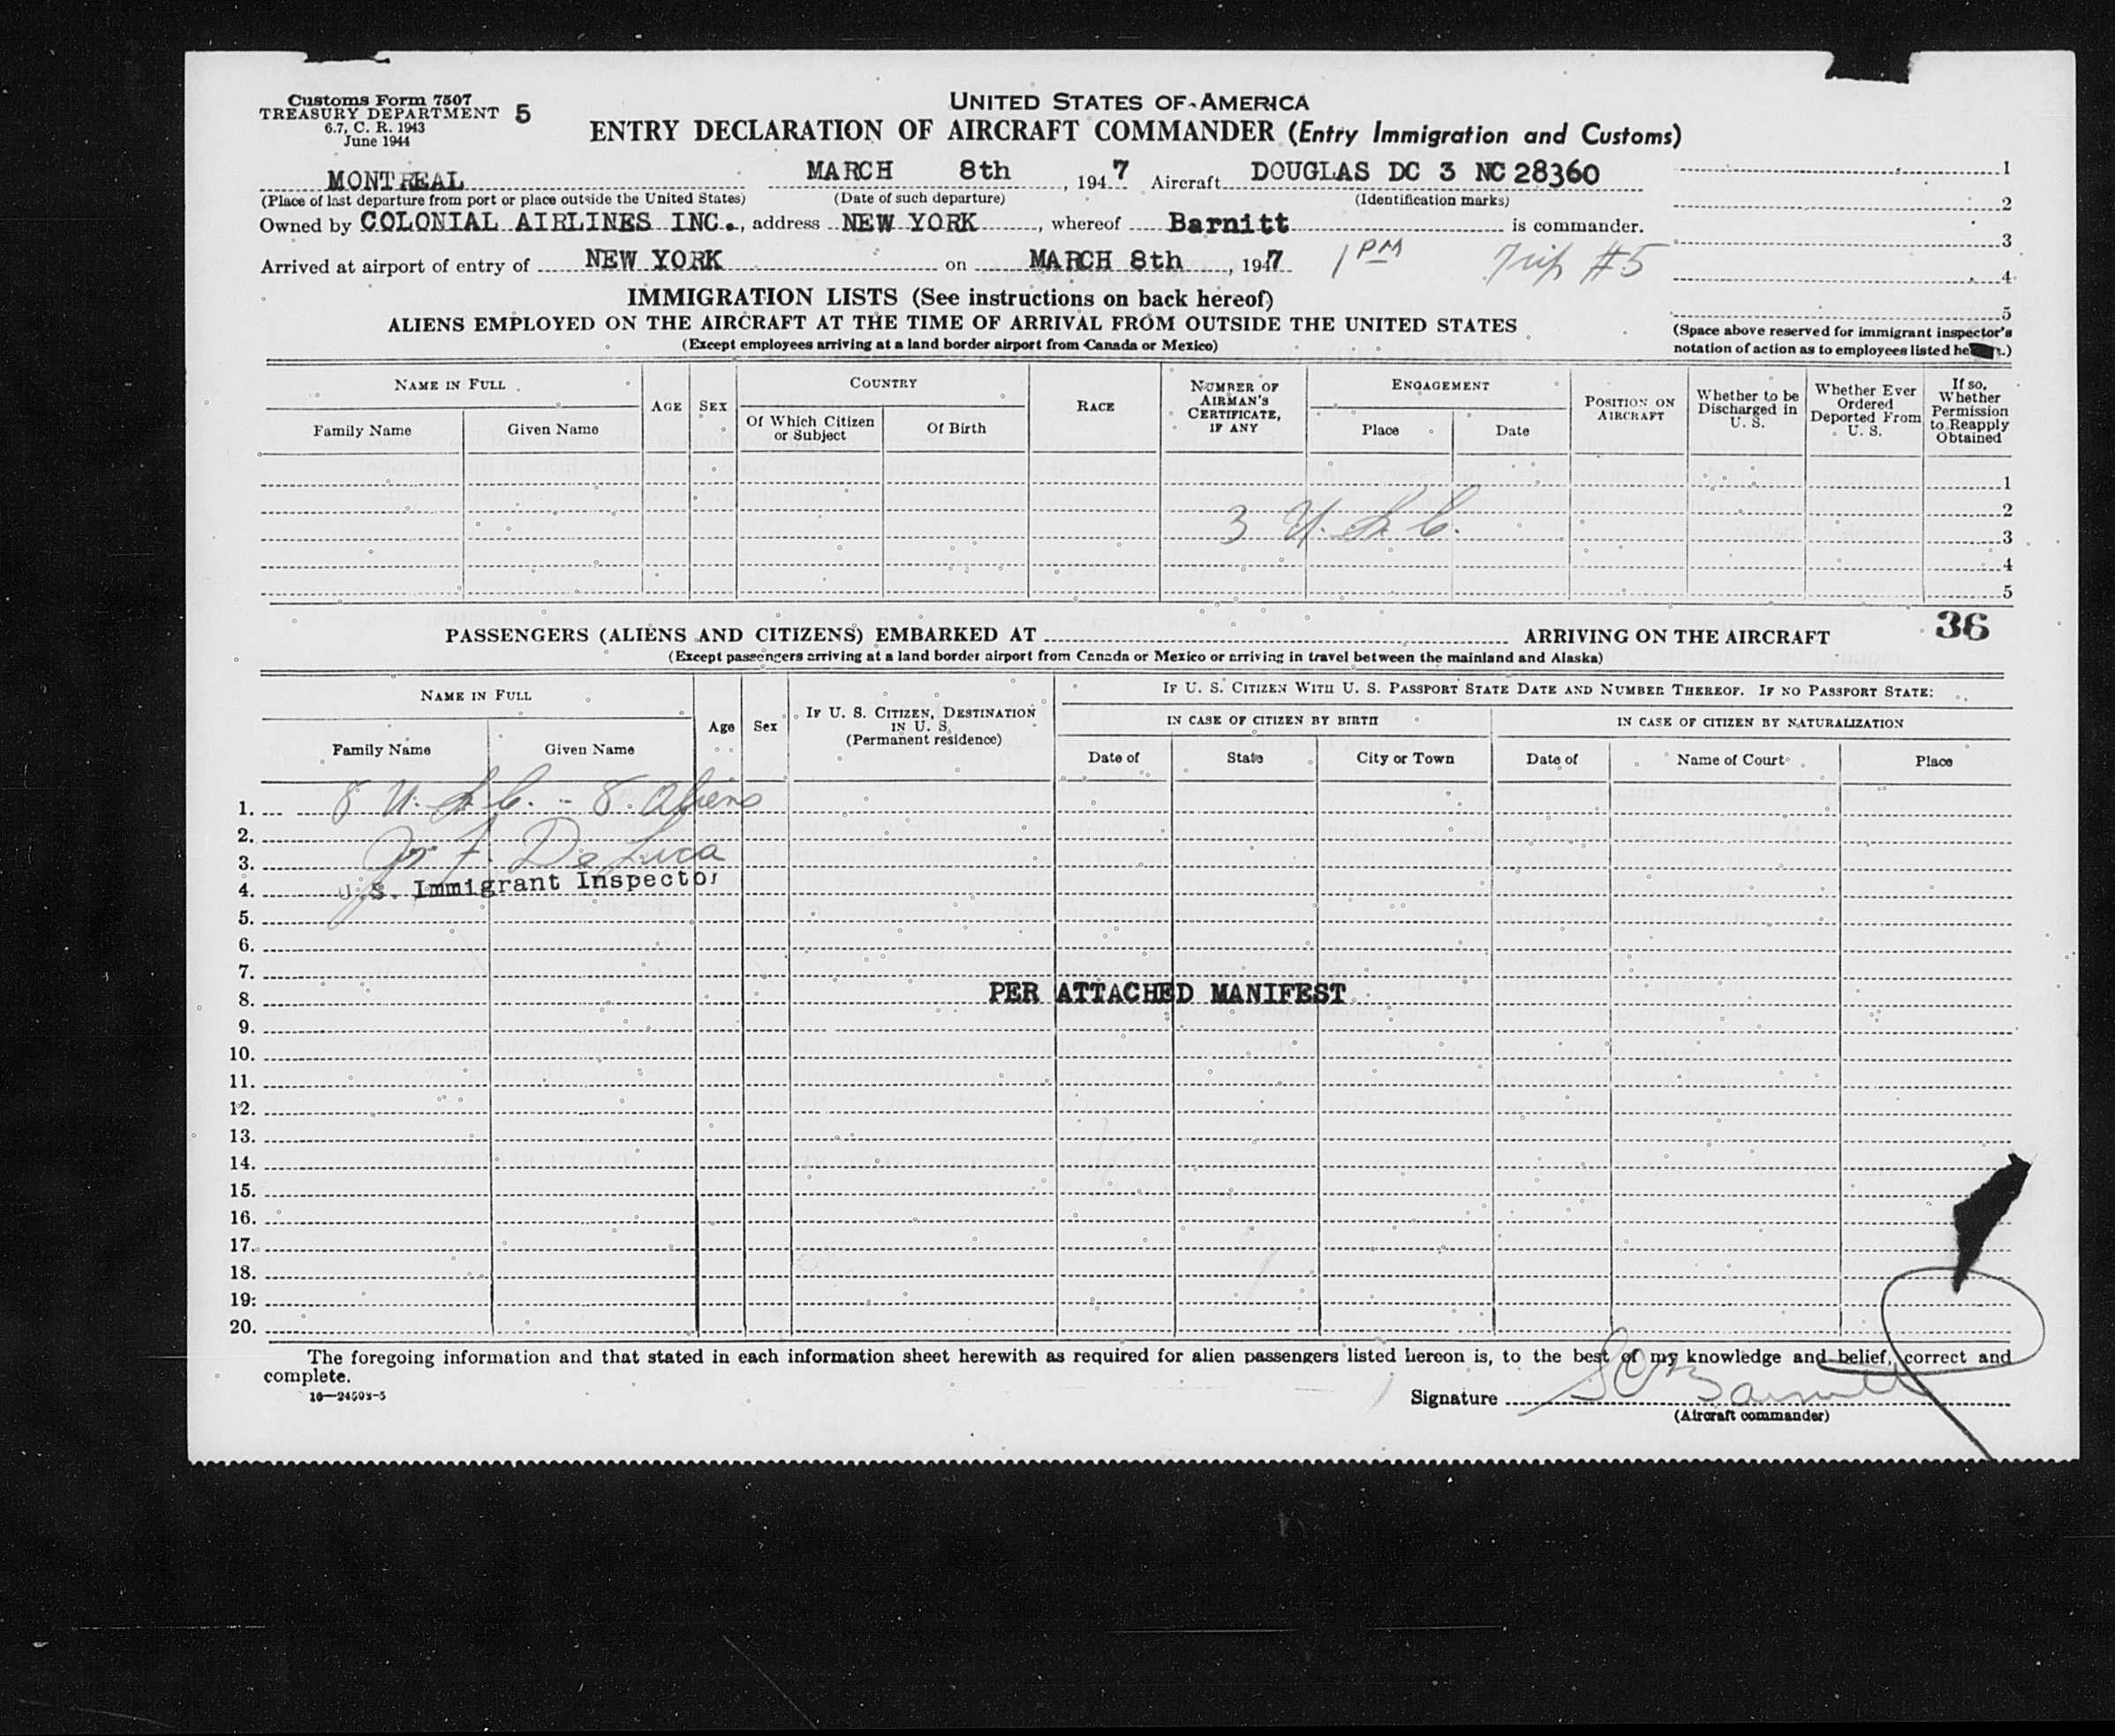 Customs Form 7507
TREASURY DEPARTMENT 5
6.7, C. R. 1943
June 1944
UNITED STATES OF AMERICA
ENTRY DECLARATION OF AIRCRAFT COMMANDER (Entry Immigration and Customs)
MONTREAL MARCH 8th, 1947 Aircraft DOUGLAS DC 3 NC 28360 1
(Place of last departure from port or place outside the United States) (Date of such departure) (Identification marks) 2
Owned by COLONIAL AIRLINES INC., address NEW YORK, whereof Barnitt is commander.
3
Arrived at airport of entry of NEW YORK on MARCH 8th, 1947 1 PM Trip #5
4
IMMIGRATION LISTS (See instructions on back hereof)
5
ALIENS EMPLOYED ON THE AIRCRAFT AT THE TIME OF ARRIVAL FROM OUTSIDE THE UNITED STATES
(Except employees arriving at a land border airport from Canada or Mexico)
(Space above reserved for immigrant inspector's
notation of action as to employees listed
NAME IN FULL
Family Name Given Name
AGE SEX
COUNTRY
Of Which Citizen or Subject Of Birth
RACE
NUMBER OF AIRMAN'S CERTIFICATE, IF ANY
ENGAGEMENT
Place Date
POSITION ON AIRCRAFT
Whether to be Discharged in U. S.
Whether Ever Ordered Deported From U. S.
If so, Whether Permission to Reapply Obtained
1
2
3 U.S.C. 3
4
5
36
PASSENGERS (ALIENS AND CITIZENS) EMBARKED AT ARRIVING ON THE AIRCRAFT
(Except passengers arriving at a land border airport from Canada or Mexico or arriving in travel between the mainland and Alaska)
NAME IN FULL
Family Name Given Name
Age Sex
IF U. S. CITIZEN, DESTINATION IN U. S. (Permanent residence)
IF U. S. CITIZEN WITH U. S. PASSPORT STATE DATE AND NUMBER THEREOF. IF NO PASSPORT STATE:
IN CASE OF CITIZEN BY BIRTH IN CASE OF CITIZEN BY NATURALIZATION
Date of State City or Town Date of Name of Court Place
1. 8 U.S.C. - 8 Aliens
2.
3. De Luca
4. U.S. Immigrant Inspector
5.
6.
7.
8. PER ATTACHED MANIFEST
9.
10.
11.
12.
13.
14.
15.
16.
17.
18.
19.
20.
The foregoing information and that stated in each information sheet herewith as required for alien passengers listed hereon is, to the best of my knowledge and belief, correct and
complete.
16—24593-5
Signature Barnitt
(Aircraft commander)